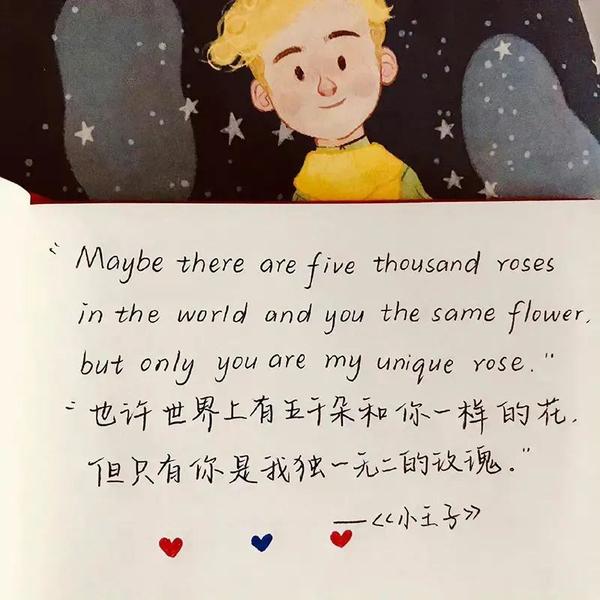 “Maybe there are five thousand roses
in the world and you the same flower,
but only you are my unique rose.”
“也许世界上有五千朵和你一样的花,
但只有你是我独一无二的玫瑰.”
—《小王子》